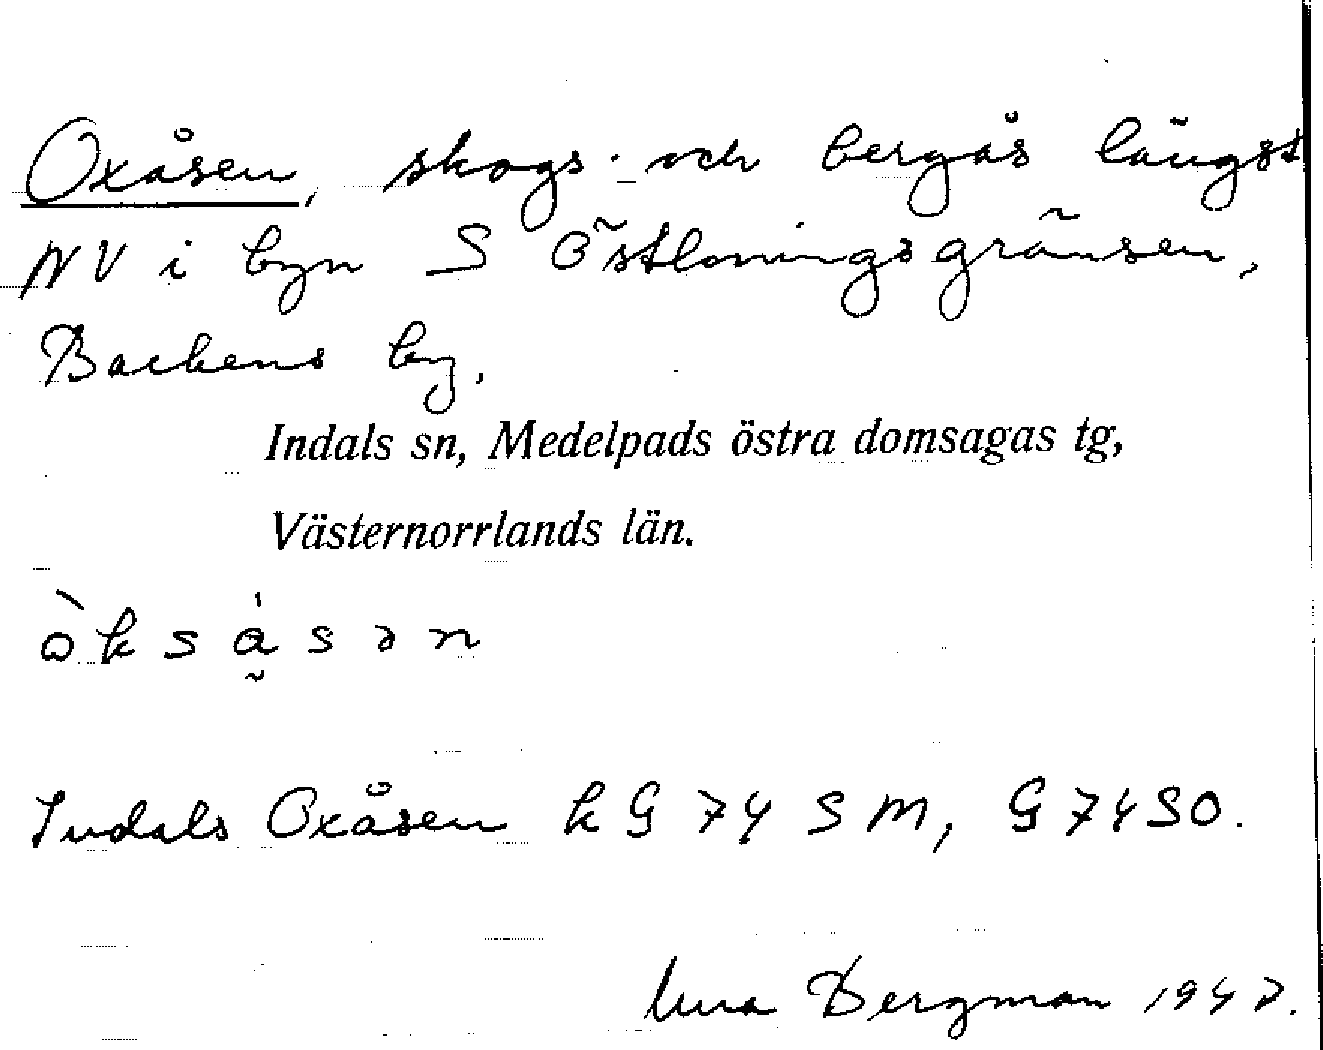 Oxåsen, skogs- och bergås längst
NV i byn S Östloningsgränsen,
Backens by.
Indals sn, Medelpads östra domsagas tg,
Västernorrlands län.
òksåsən
Indals Oxåsen k G 74 S M, G 74 S O.
Bergman